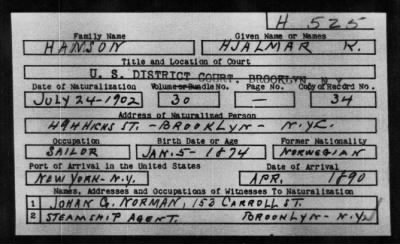 H 525
Family Name Given Name or Names
HANSON HJALMAR K.
Title and Location of Court
U. S. DISTRICT COURT, BROOKLYN, N.Y.
Date of Naturalization Volume or Bundle No. Page No. Copy of Record No.
JULY 24-1902 30 — 34
Address of Naturalized Person
HICKS ST. - BROOKLYN - N.Y.C.
Occupation Birth Date or Age Former Nationality
SAILOR JAN. 5-1874 NORWEGIAN
Port of Arrival in the United States Date of Arrival
NEW YORK - N.Y. APR. 1890
Names, Addresses and Occupations of Witnesses To Naturalization
1 JOHAN G. NORMAN, 153 CARROLL ST.
2 STEAMSHIP AGENT. BROOKLYN - N.Y.